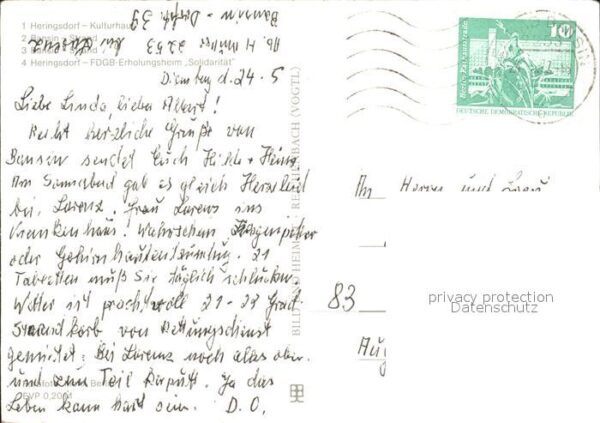 1 Heringsdorf – Kulturhaus
2 Bansin – Strand
4 Heringsdorf – FDGB-Erholungsheim „Solidarität"
Bansin - Dorfstr. 39
Ab. H. Müller 2253
Dienstag d. 24. 5
Liebe Linda, lieber Albert!
Recht herzliche Grüße von
Bansin sendet Euch Hilde + Heinz
Am Sonnabend gab es gleich Herzleid
bei Lorenz. Frau Lorenz ins
Krankenhaus! Wahrschein
oder Gehirnhautentzündung. 21
Tabletten muß Sie täglich schlucken
Wetter ist prachtvoll 21 - 23 Grad
Strandkorb von Rettungsdienst
gemietet. Bei Lorenz noch alles oben
und zum Teil kaputt. Ja das
Leben kann hart sein. D. O.
EVP 0,20
BILD REICHENBACH (VOGTL)
10
DEUTSCHE DEMOKRATISCHE REPUBLIK
An Herrn und Frau
83
privacy protection
Datenschutz